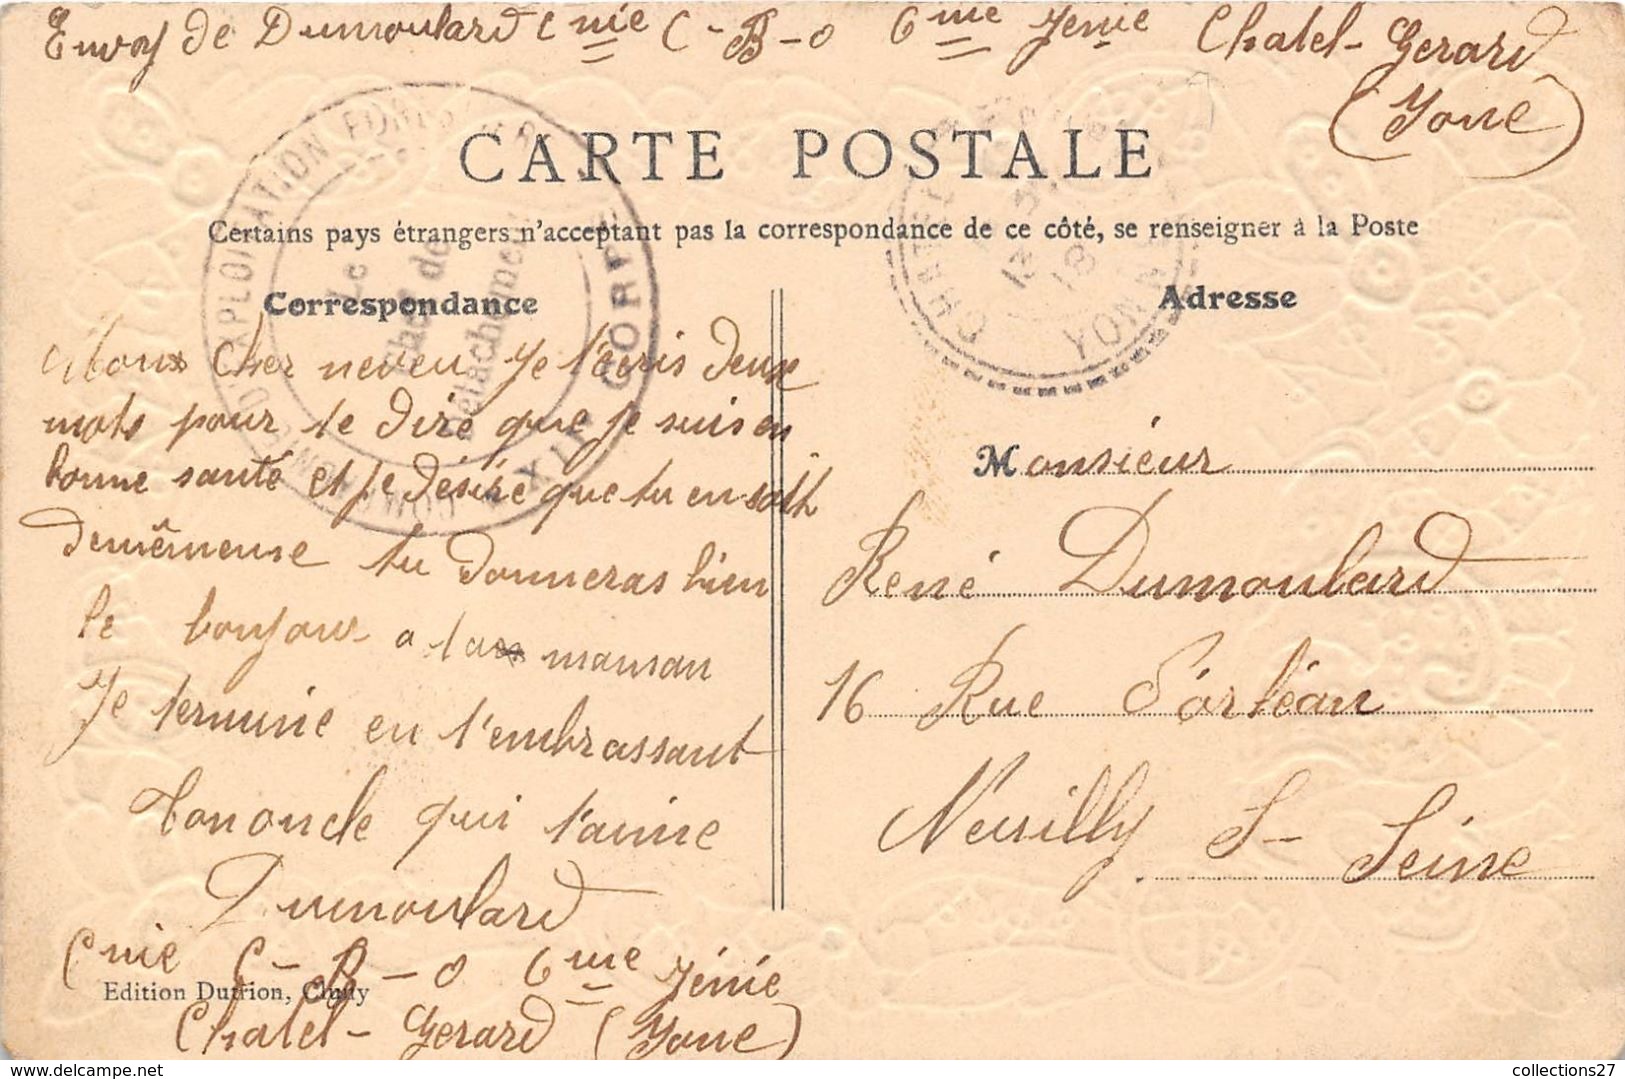 Envoy de Dumoulard Cnie C-B-O 6me Jenie Chatel-Gerard
(Yone)
CARTE POSTALE
Certains pays étrangers n'acceptant pas la correspondance de ce côté, se renseigner à la Poste
Correspondance
Mon Cher neveu Je t'ecris deux
mots pour te dire que je suis en
bonne santé et je désire que tu en soit
demêmeuse tu donneras bien
le bonjour a ta maman
Je termine en t'embrassant
Tononcle qui t'aime
Dumoulard
Cnie C-B-O 6me Jénie
Chatel-Gerard (Yone)
Edition Dutrion, Cluny
Adresse
Monsieur
René Dumoulard
16 Rue d'orléan
Neuilly S-Seine
D'EXPLOITATION FORESTIERE
Le
Chef de
Détachement
CORPS
CHATEL
13
18
YONNE
collections27